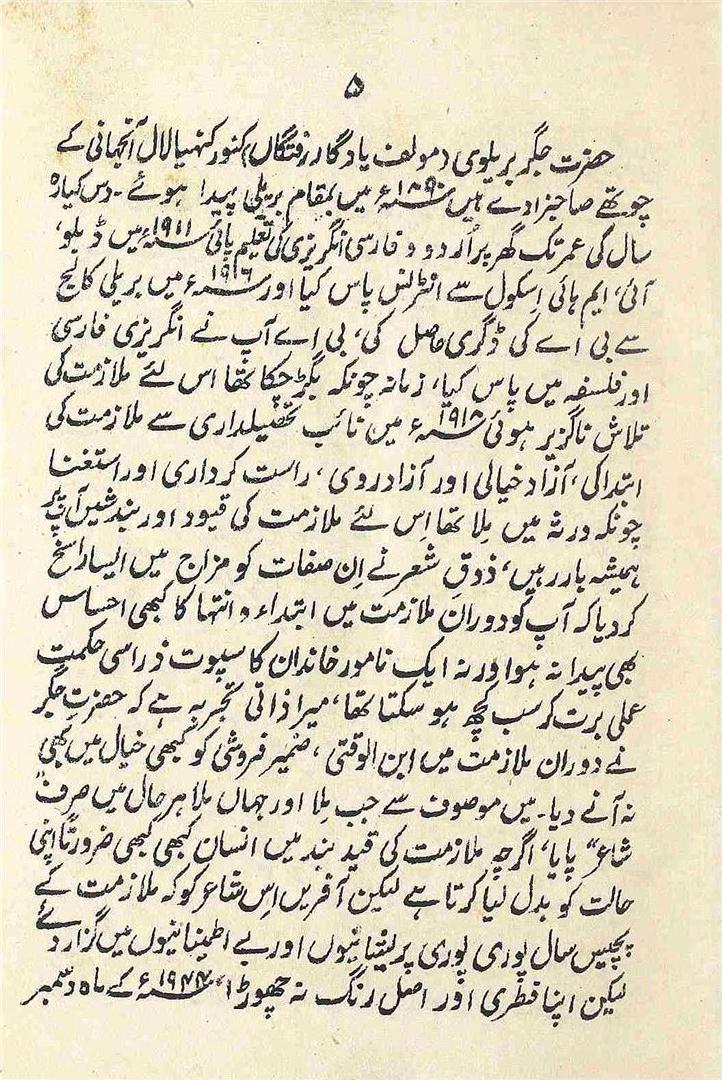 ۵
حضرت جگر بریلوی (مولف یادگار رفتگاں) کنور کنہیا لال آنجہانی کے
چوتھے صاحبزادے ہیں ۱۸۹۰ء میں بمقام بریلی پیدا ہوئے۔ دس گیارہ
سال کی عمر تک گھر پر اُردو و فارسی انگریزی کی تعلیم پائی ۱۹۱۱ء میں ڈبلو،
آئی، ایم ہائی اِسکول سے انٹرنس پاس کیا اور ۱۹۱۶ء میں بریلی کالج
سے بی اے کی ڈگری حاصل کی، بی اے آپ نے انگریزی فارسی
اور فلسفہ میں پاس کیا، زمانہ چونکہ بگڑ چکا تھا اس لئے ملازمت کی
تلاش ناگزیر ہوئی ۱۹۱۸ء میں نائب تحصیلداری سے ملازمت کی
ابتدا کی، آزاد خیالی اور آزاد روی، راست کرداری اور استغنا
چونکہ ورثہ میں مِلا تھا اِس لئے ملازمت کی قیود اور بندشیں آپ پر
ہمیشہ بار رہیں، ذوقِ شعر نے اِن صفات کو مزاج میں ایسا راسخ
کر دیا کہ آپ کو دورانِ ملازمت میں ابتداء و انتہا کا کبھی احساس
بھی پیدا نہ ہوا ورنہ ایک نامور خاندان کا سپوت ذرا سی حکمتِ
عملی برت کر سب کچھ ہو سکتا تھا، میرا ذاتی تجربہ ہے کہ حضرتِ جگر
نے دوران ملازمت میں ابن الوقتی، ضمیر فروشی کو کبھی خیال میں بھی
نہ آنے دیا۔ میں موصوف سے جب مِلا اور جہاں مِلا ہر حال میں صرف "
شاعر" پایا، اگرچہ ملازمت کی قید بند میں انسان کبھی کبھی ضرورتاً اپنی
حالت کو بدل لیا کرتا ہے لیکن آفریں اِس شاعر کو کہ ملازمت کے
پچیس سال پوری پوری پریشانیوں اور بے اطمینانیوں میں گزار دئے
لیکن اپنا فطری اور اصل رنگ نہ چھوڑا، ۱۹۴۴ء کے ماہ دسمبر